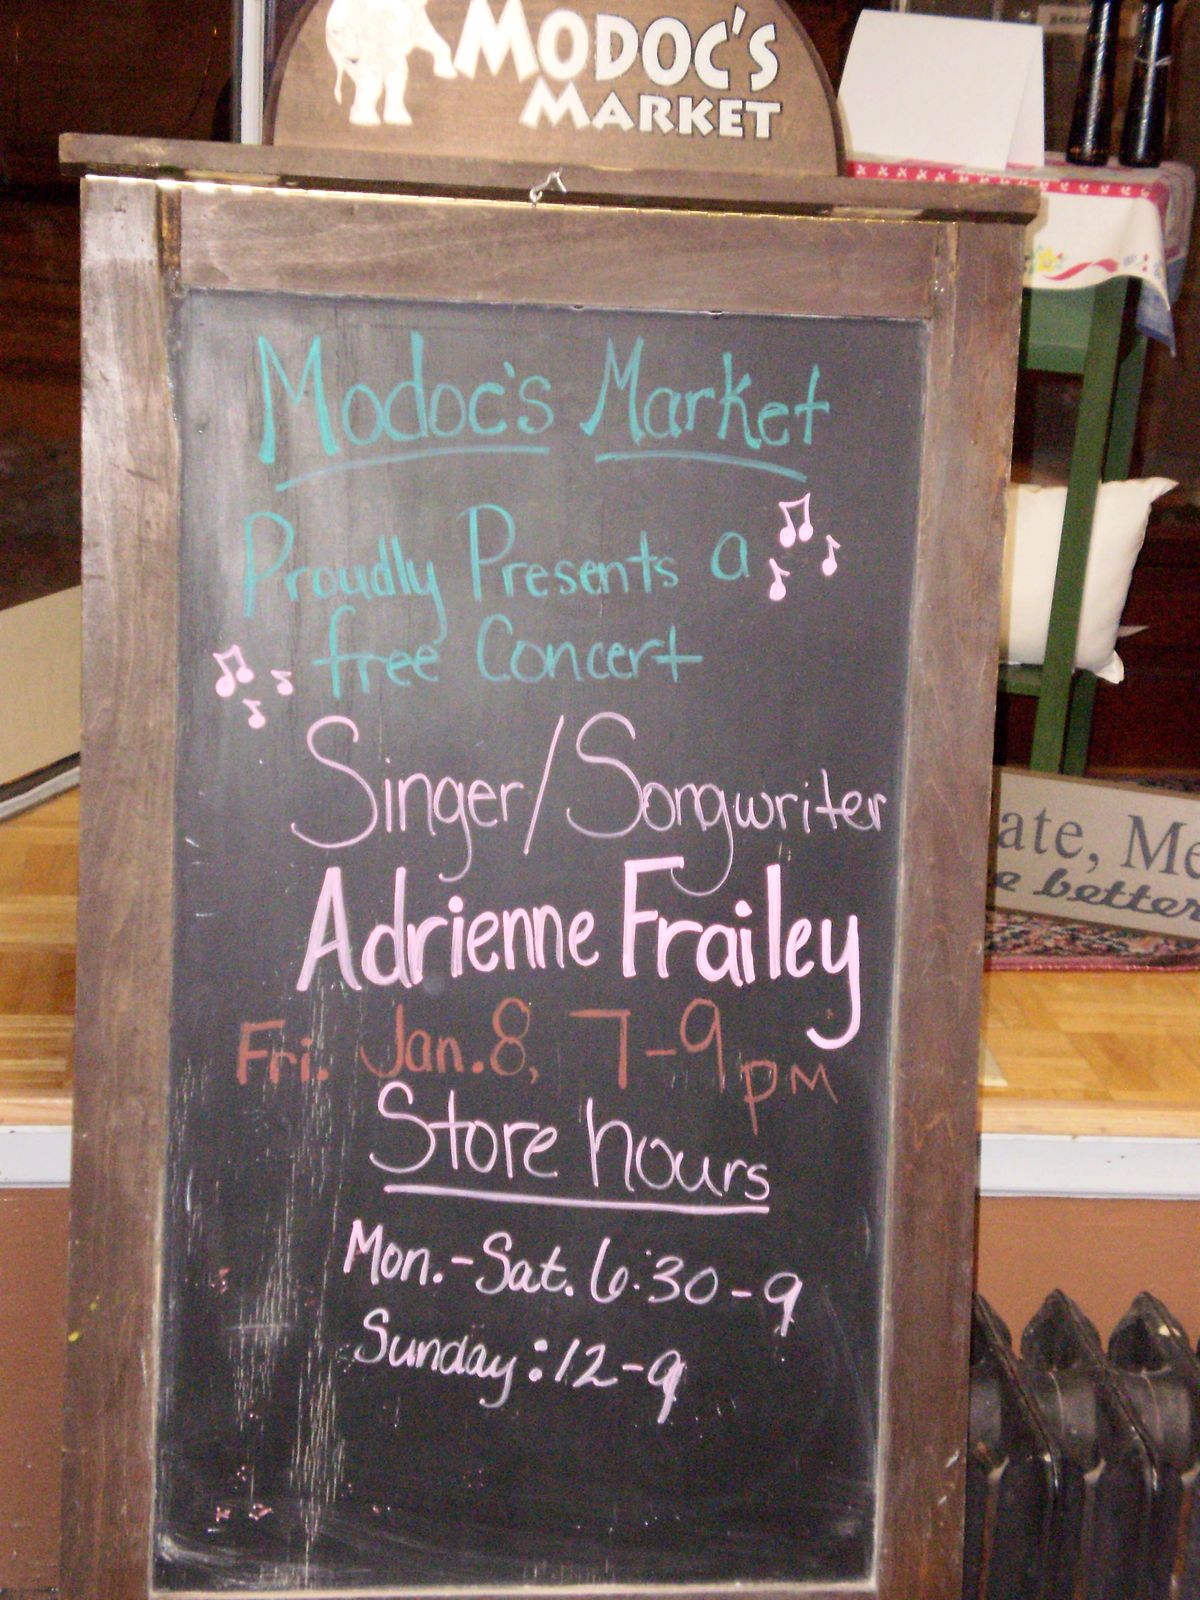 MODOC'S
MARKET
Modoc's Market
Proudly Presents a
free Concert
Singer/Songwriter
Adrienne Frailey
Fri. Jan. 8, 7-9 PM
Store hours
Mon.-Sat. 6:30-9
Sunday: 12-9
ate, Me
e better